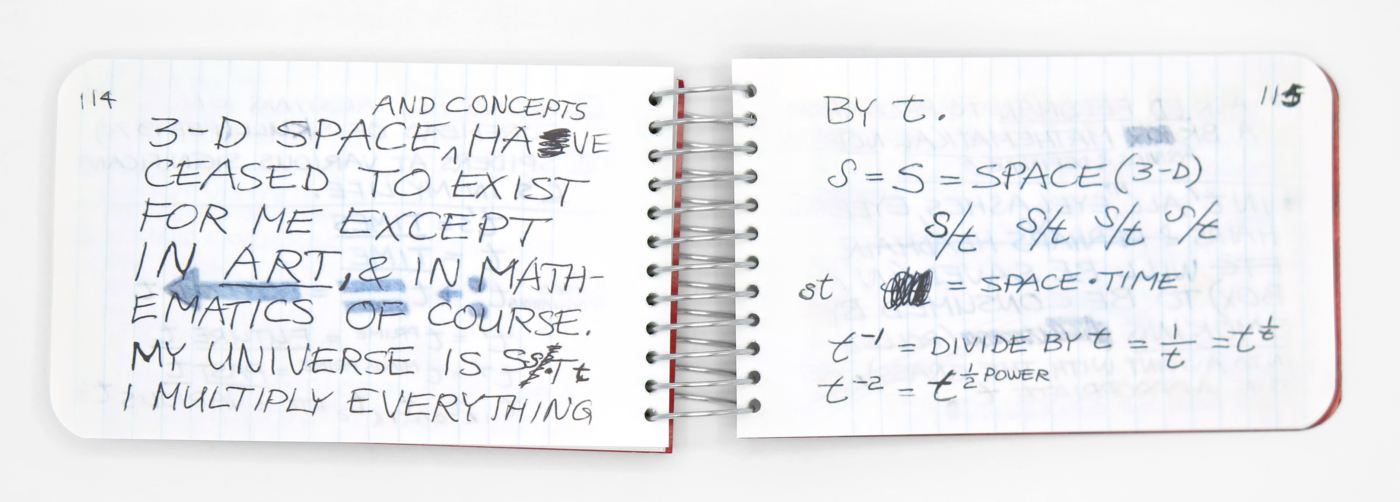 114
AND CONCEPTS
3-D SPACE ‸ HAVE
CEASED TO EXIST
FOR ME EXCEPT
IN ART, & IN MATH-
EMATICS OF COURSE.
MY UNIVERSE IS
I MULTIPLY EVERYTHING
115
BY t.
S = S = SPACE (3-D)
S/t S/t S/t S/t
st = SPACE·TIME
t⁻¹ = DIVIDE BY t = 1/t =
t⁻² = t½ POWER